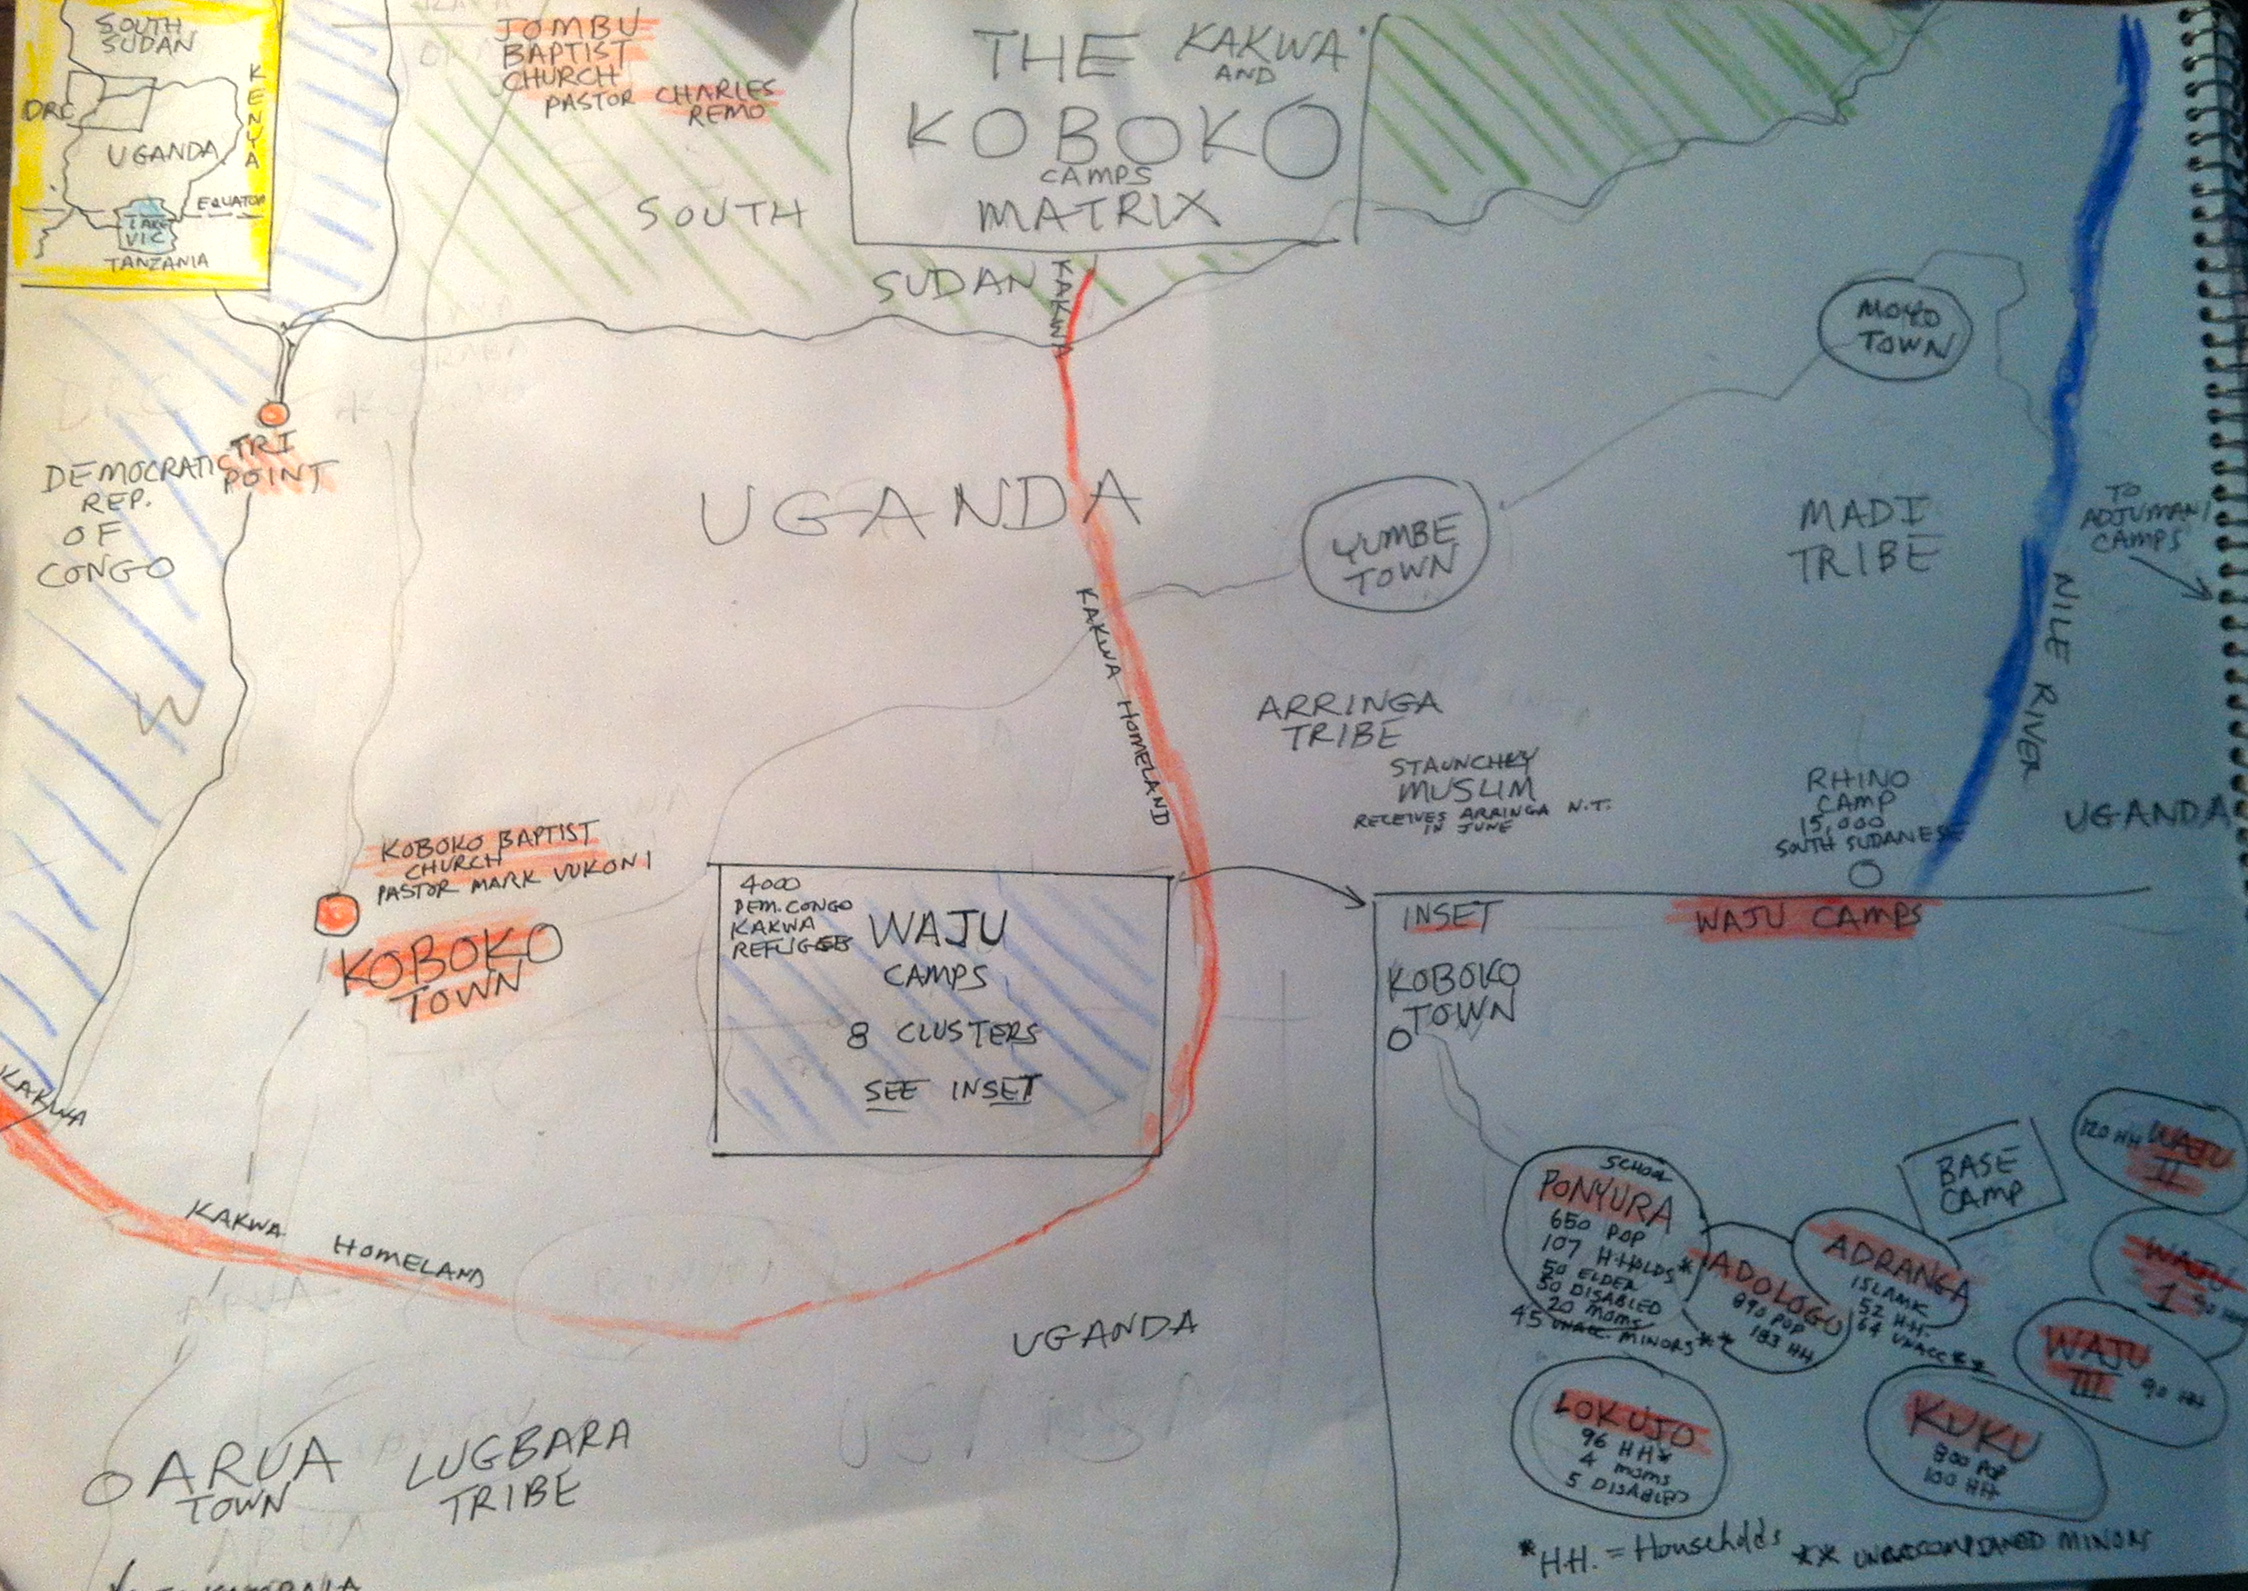 SOUTH
SUDAN
DRC
KENYA
UGANDA
EQUATOR
LAKE
VIC
TANZANIA
JOMBU
BAPTIST
CHURCH
PASTOR CHARLES
REMO
THE KAKWA
AND
KOBOKO
CAMPS
MATRIX
SOUTH
SUDAN
KAKWA
MOYO
TOWN
TRI
POINT
DEMOCRATIC
REP.
OF
CONGO
UGANDA
YUMBE
TOWN
MADI
TRIBE
TO
ADJUMANI
CAMPS
NILE RIVER
KAKWA HOMELAND
ARRINGA
TRIBE
STAUNCHLY
MUSLIM
RECEIVES ARRINGA N.T.
IN JUNE
RHINO
CAMP
15,000
SOUTH SUDANESE
UGANDA
KOBOKO BAPTIST
CHURCH
PASTOR MARK VUKONI
KOBOKO
TOWN
4000
DEM. CONGO
KAKWA
REFUGEES
WAJU
CAMPS
8 CLUSTERS
SEE INSET
INSET
WAJU CAMPS
KOBOKO
TOWN
KAKWA
KAKWA HOMELAND
SCHOOL
PONYURA
650 POP
107 H.HOLDS*
50 ELDER
30 DISABLED
20 MOMS
45 UNACC. MINORS**
ADOLOGO
890 POP
183 HH
ADRANGA
ISLAMIC
52 H.H.
64 UNACC**
BASE
CAMP
120 HH WAJU
II
WAJU
1 50 HH
WAJU
III 90 HH
LOKUJO
96 HH*
4 MOMS
5 DISABLED
KUKU
800 POP
100 HH
UGANDA
ARUA
TOWN
LUGBARA
TRIBE
*H.H. = Households ** UNACCOMPANIED MINORS